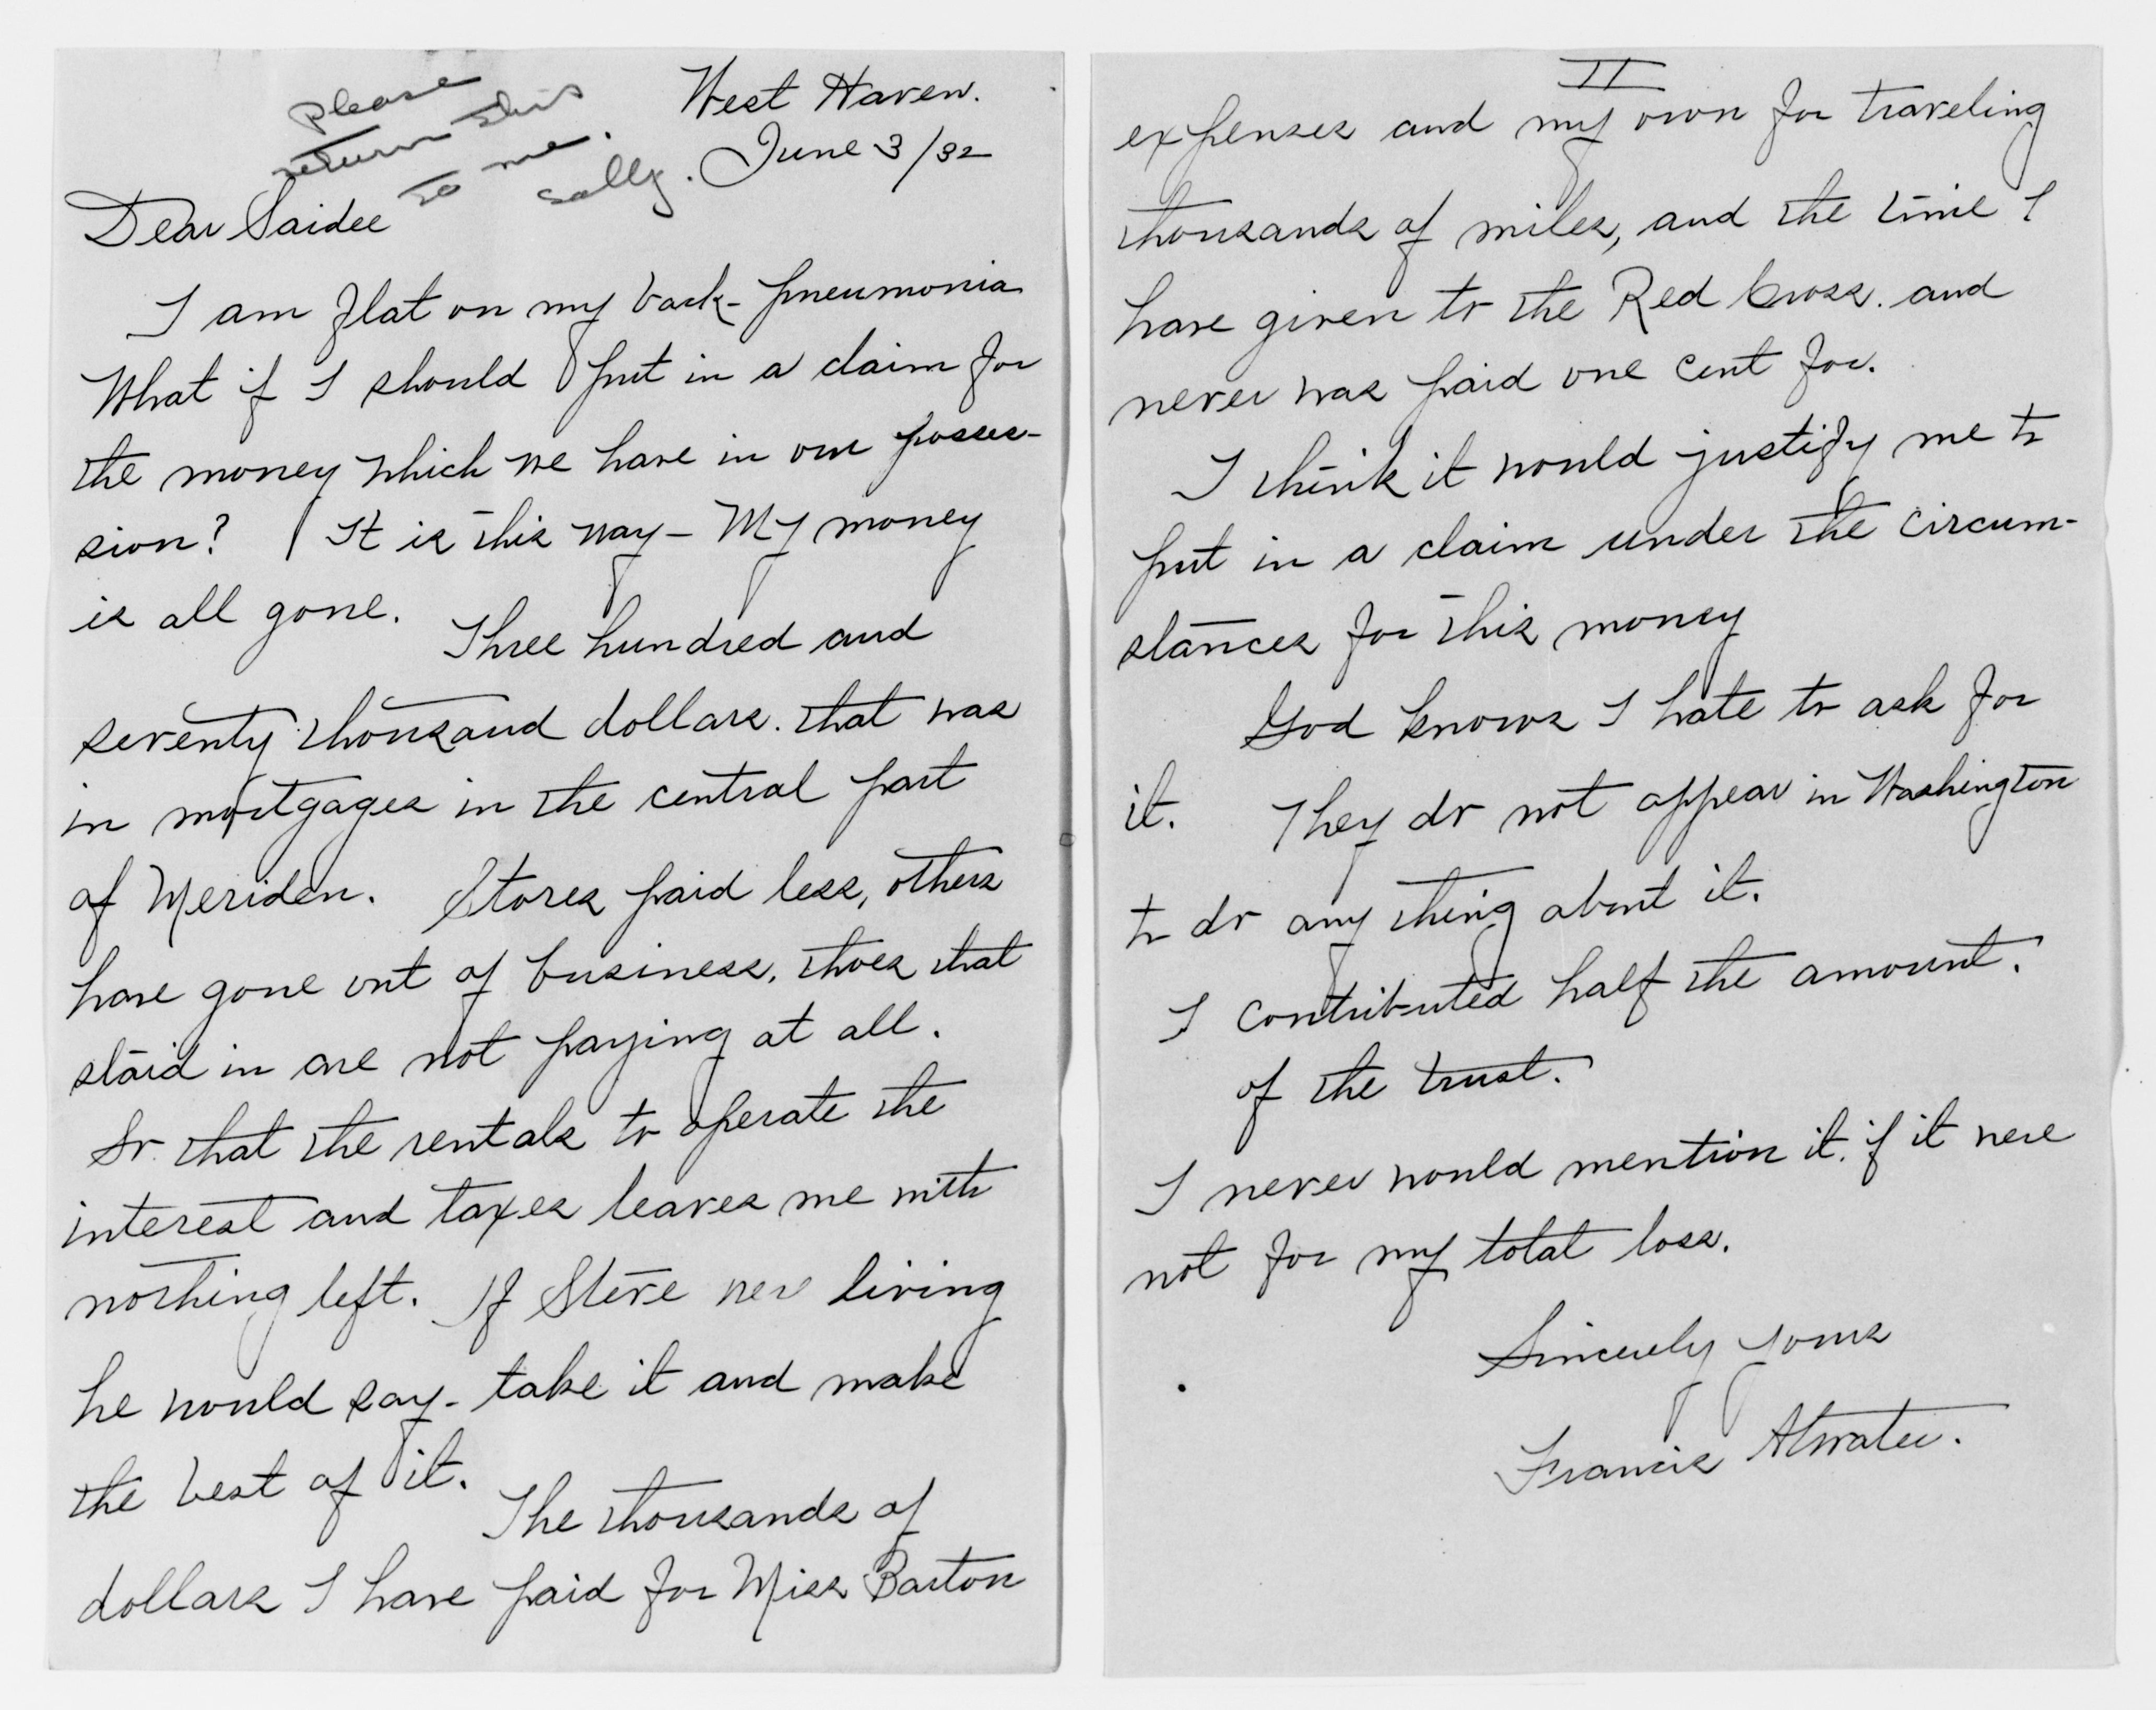 please
return this
to me.
Sally.
West Haven.
June 3/32
Dear Saidee
I am flat on my back - pneumonia
What if I should put in a claim for
the money which we have in our posses-
sion? It is this way - My money
is all gone. Three hundred and
seventy thousand dollars. that was
in mortgages in the central part
of Meriden. Stores paid less, others
have gone out of business, thoes that
staid in are not paying at all.
So that the rentals to operate the
interest and taxes leaves me with
nothing left. If Steve wer living
he would say - take it and make
the best of it. The thousands of
dollars I have paid for Miss Barton
II
expenses and my own for traveling
thousands of miles, and the time I
have given to the Red Cross. and
never was paid one cent for.
I think it would justify me to
put in a claim under the circum-
stances for this money
God knows I hate to ask for
it. They do not appear in Washington
to do any thing about it.
I contributed half the amount.
of the trust.
I never would mention it. if it were
not for my total loss.
Sincerely yours
Francis Atwater.